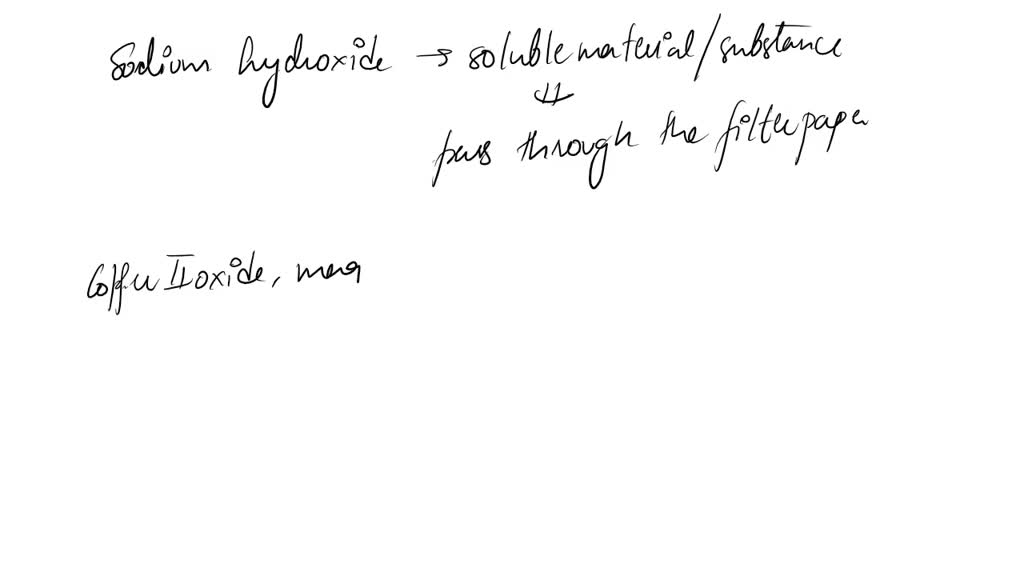 Sodium hydroxide → soluble material/substance
⇓
pass through the filter paper
Copper II oxide, mag